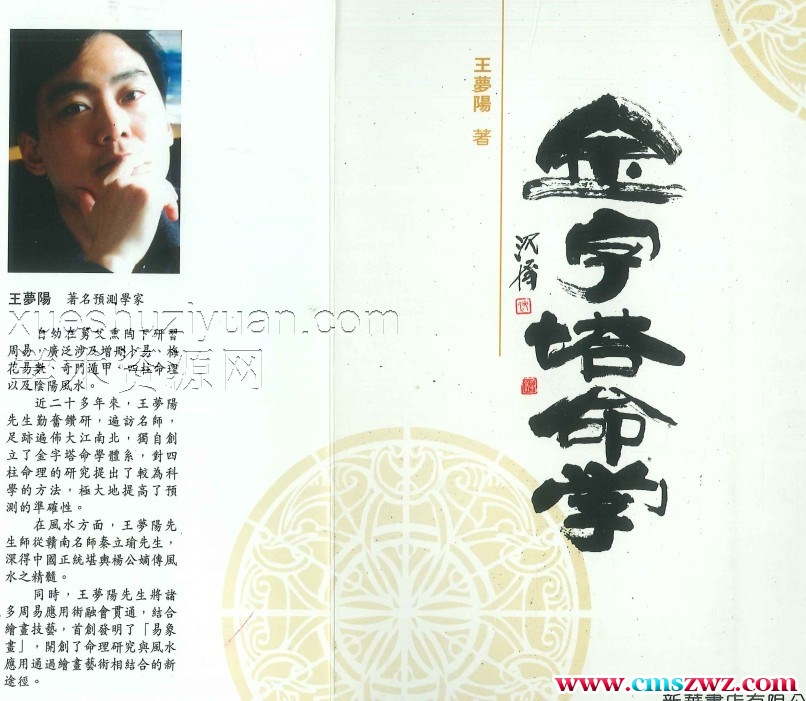 金字塔命学
王夢陽 著
王夢陽 著名預測學家
自幼在舅父熏陶下研習
周易，廣泛涉及增刪卜易、梅
花易數、奇門遁甲、四柱命理
以及陰陽風水
近二十多年來，王夢陽
先生勤奮鑽研，遍訪名師，
足跡遍佈大江南北，獨自創
立了金字塔命學體系，對四
柱命理的研究提出了較為科
學的方法，極大地提高了預
測的準確性。
在風水方面，王夢陽先
生師從贛南名師秦立瑜先生，
深得中國正統堪輿楊公嫡傳風
水之精髓。
同時，王夢陽先生將諸
多周易應用術融會貫通，結合
繪畫技藝，首創發明了「易象
畫」，開創了命理研究與風水
應用通過繪畫藝術相結合的新
途徑。
xueshuziyuan.com
学术资源网
www.cmszwz.com
新華書店有限公